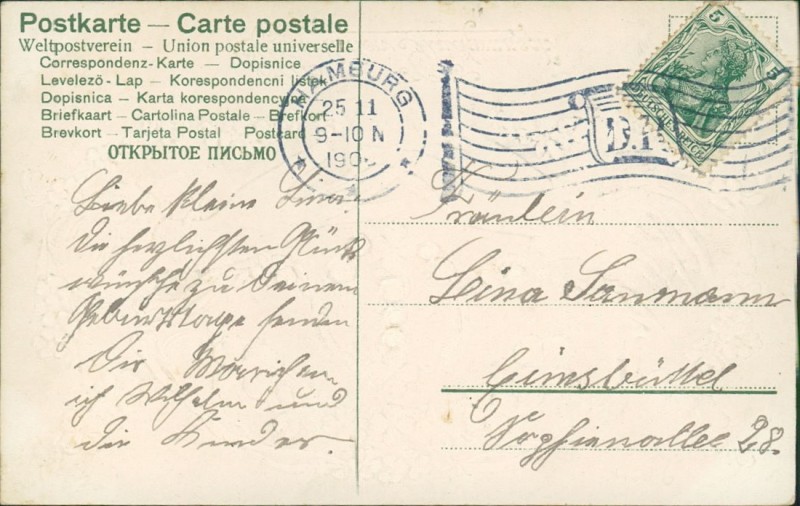 Postkarte — Carte postale
Weltpostverein — Union postale universelle
Correspondenz-Karte — Dopisnice
Levelező-Lap — Korespondencni listek
Dopisnica — Karta korespondencyjna
Briefkaart — Cartolina Postale — Brefkort
Brevkort — Tarjeta Postal Postcard
ОТКРЫТОЕ ПИСЬМО
HAMBURG
25 11
9-10 N
190
D.R.
5 5
DEUTSCHES REICH
Liebe kleine
die herzlichsten Glück
wünsche zu Deinem
Geburtstage senden
Dir
ich Wilhelm und
die Kinder.
Fräulein
Lina
Eimsbüttel
Sophienallee 28.